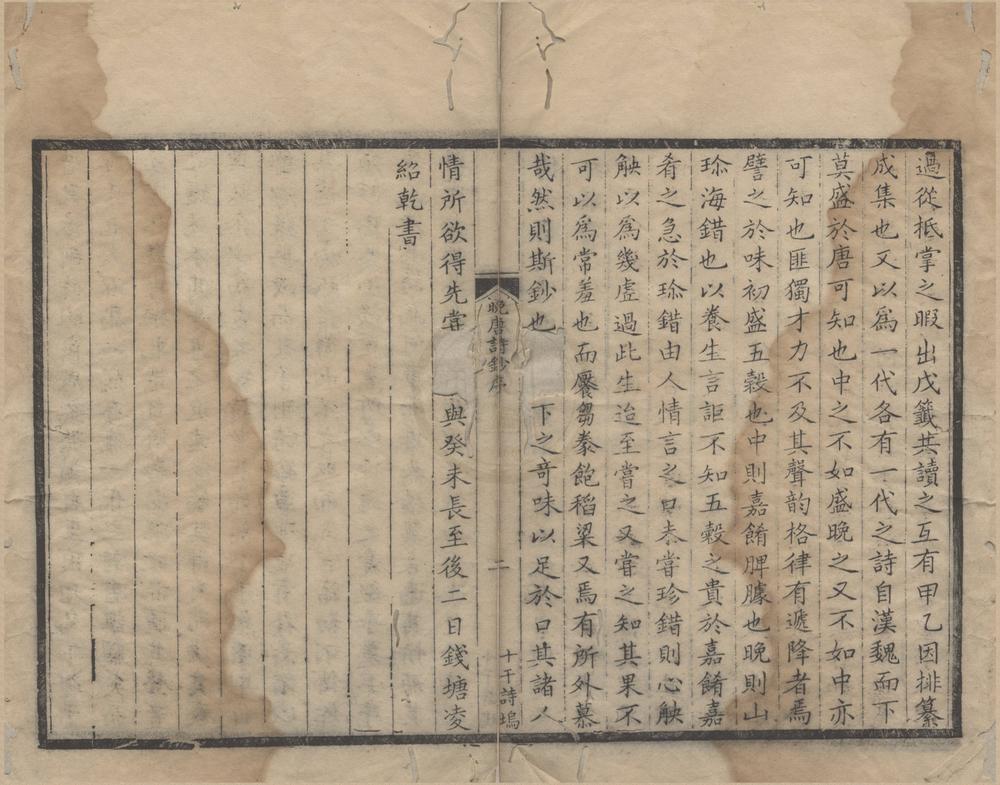 過從抵掌之暇出戊籤共讀之互有甲乙因排纂
成集也又以為一代各有一代之詩自漢魏而下
莫盛於唐可知也中之不如盛晚之又不如中亦
可知也匪獨才力不及其聲韵格律有遞降者焉
譬之於味初盛五穀也中則嘉餚脾臄也晚則山
珎海錯也以養生言詎不知五穀之貴於嘉餚嘉
肴之急於珎錯由人情言之口未嘗珍錯則心觖
觖以為幾虗過此生迨至嘗之又嘗之知其果不
可以為常羞也而饜芻豢飽稻粱又焉有所外慕
哉然則斯鈔也 下之竒味以足於口其諸人
晚唐詩鈔序
二
十干詩塢
情所欲得先嘗 與癸未長至後二日錢塘凌
紹乾書